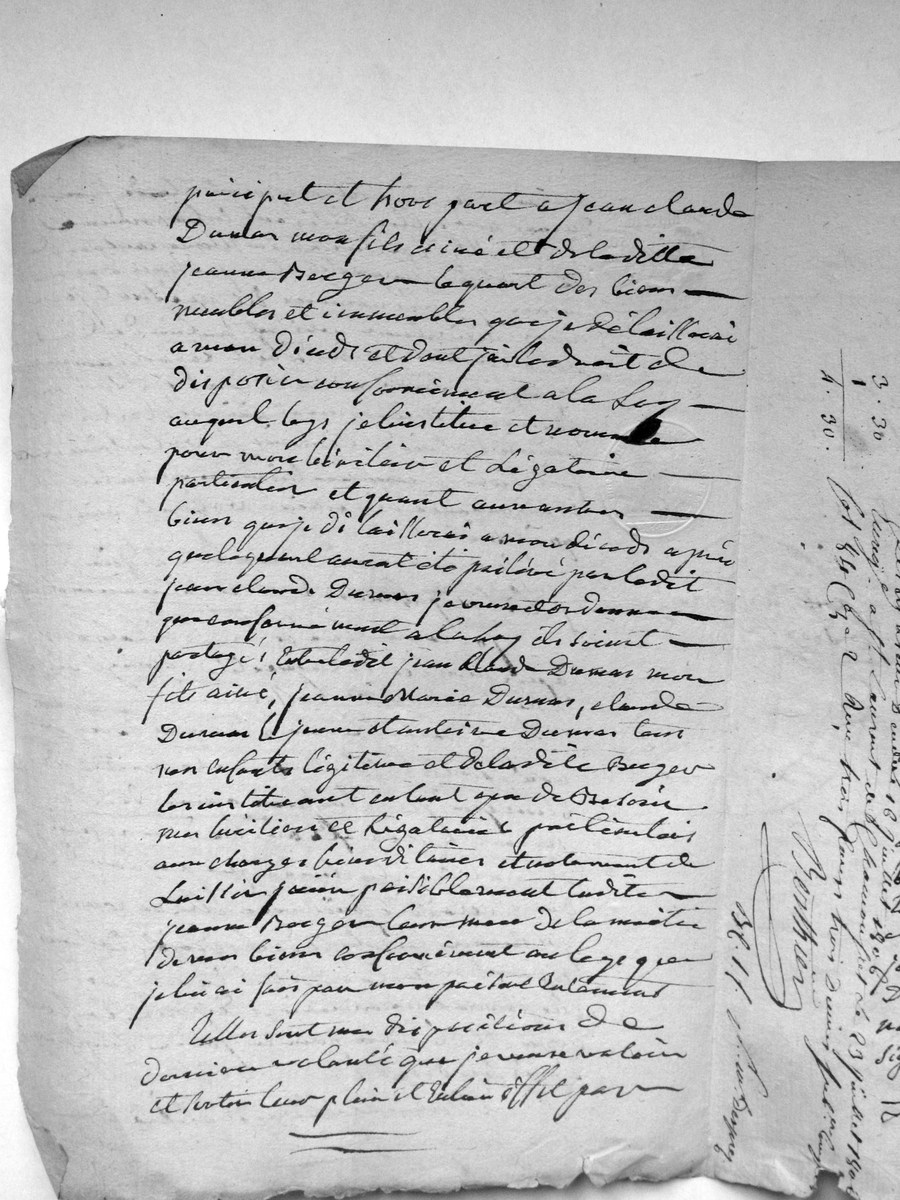 préciput et hors part a jean claude
Dumas mon fils ainé et de la ditte
jeanne Berger le quart des biens
meubles et immeubles que je délaisserai
a mon décéds et dont jai le droit de
disposer conformément a la Loy
auquel legs je l'institue et nomme
pour mon héritier et Légataire
particulier et quant au restant des
biens que je délaisserai a mon décéds après
que le quart aura été prélévé par ledit
jean claude Dumas je veux et ordonne
que conformément a la loy ils soient
partagés Entre ledit jean claude Dumas mon
fils ainé, jeanne Marie Dumas, claude
Dumas jeune et antoine Dumas tous
mes enfants légitimes et de la dite Berger
les instituant en tant que de Besoin
mes héritiers et Légataires particuliers
aux charges héréditaires et notamment de
Laisser jouir paisiblement ladite
jeanne Berger leur mere de la moitié
de mes biens conformément au legs que
je lui ai fais par mon présent testament
Telles sont mes dispositions de
derniere volonté que je veux valoir
et sortir leur plein et Entier effet par
3. 30
1
4. 30.
1806
a St Laurent de Chamousset le 23 juillet 1806
fol. 84 Case 2 Reçu trois francs trois